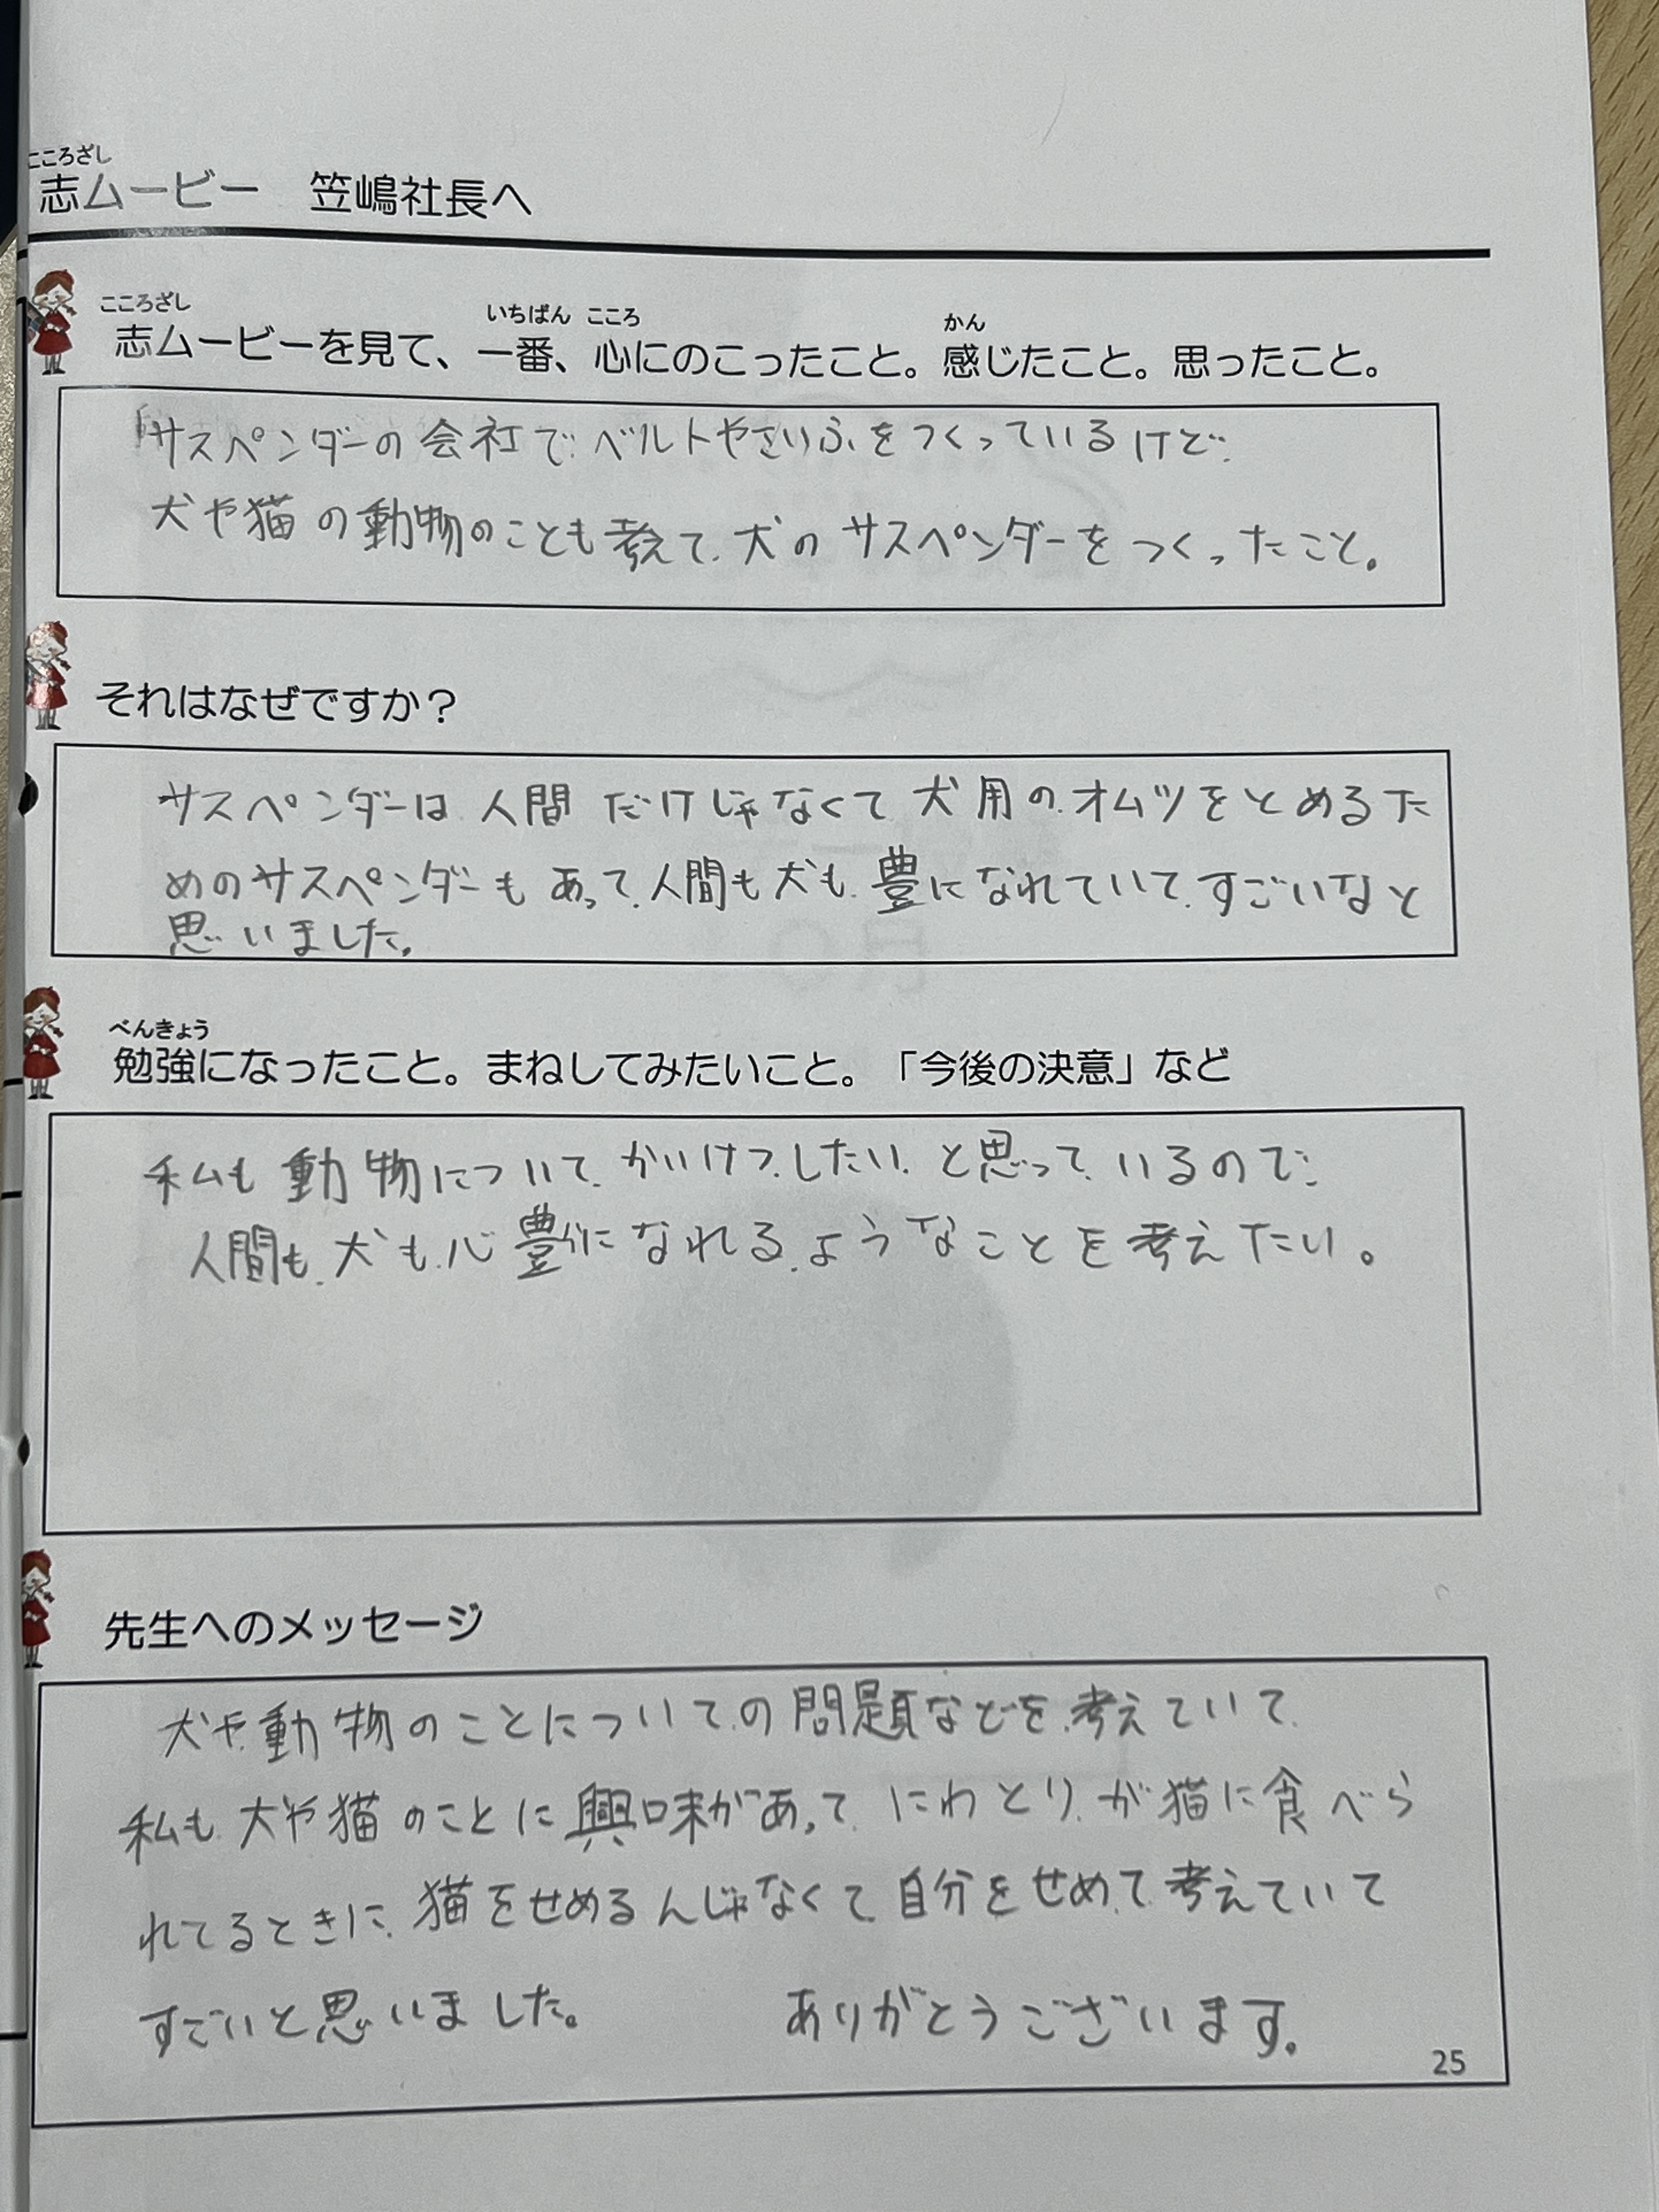 こころざし
志ムービー 笠嶋社長へ
こころざし いちばん こころ かん
志ムービーを見て、一番、心にのこったこと。感じたこと。思ったこと。
サスペンダーの会社でベルトやさいふをつくっているけど、
犬や猫の動物のことも考えて、犬のサスペンダーをつくったこと。
それはなぜですか？
サスペンダーは人間だけじゃなくて犬用のオムツをとめるた
めのサスペンダーもあって、人間も犬も、豊になれていて、すごいなと
思いました。
べんきょう
勉強になったこと。まねしてみたいこと。「今後の決意」など
私も動物について、かいけつしたいと思っているので、
人間も、犬も、心豊かになれるようなことを考えたい。
先生へのメッセージ
犬や動物のことについての問題などを考えていて、
私も犬や猫のことに興味があって、にわとりが猫に食べら
れてるときに、猫をせめるんじゃなくて、自分をせめて、考えていて
すごいと思いました。 ありがとうございます。
25